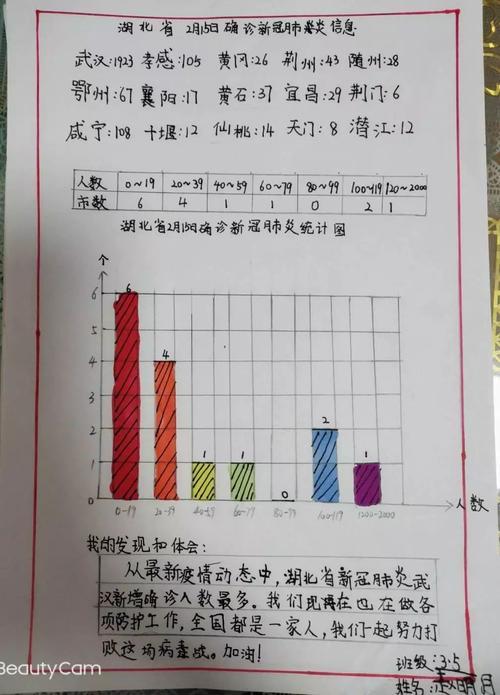 湖北省 2月15日确诊新冠肺炎信息
武汉:1923 孝感:105 黄冈:26 荆州:43 随州:28
鄂州:67 襄阳:17 黄石:37 宜昌:29 荆门:6
咸宁:108 十堰:12 仙桃:14 天门:8 潜江:12
人数 0~19 20~39 40~59 60~79 80~99 100~119 120~2000
市数 6 4 1 1 0 2 1
湖北省2月15日确诊新冠肺炎统计图
个
6
6
5
4
4
3
2
2
1
1
1
1
0
0
0-19 20-39 40-59 60-79 80-99 100-119 1200-2000
人数
我的发现和体会:
从最新疫情动态中,湖北省新冠肺炎武
汉新增确诊人数最多。我们现在也在做各
项防护工作,全国都是一家人,我们一起努力打
败这场病毒战。加油!
班级:3.5
姓名:
BeautyCam